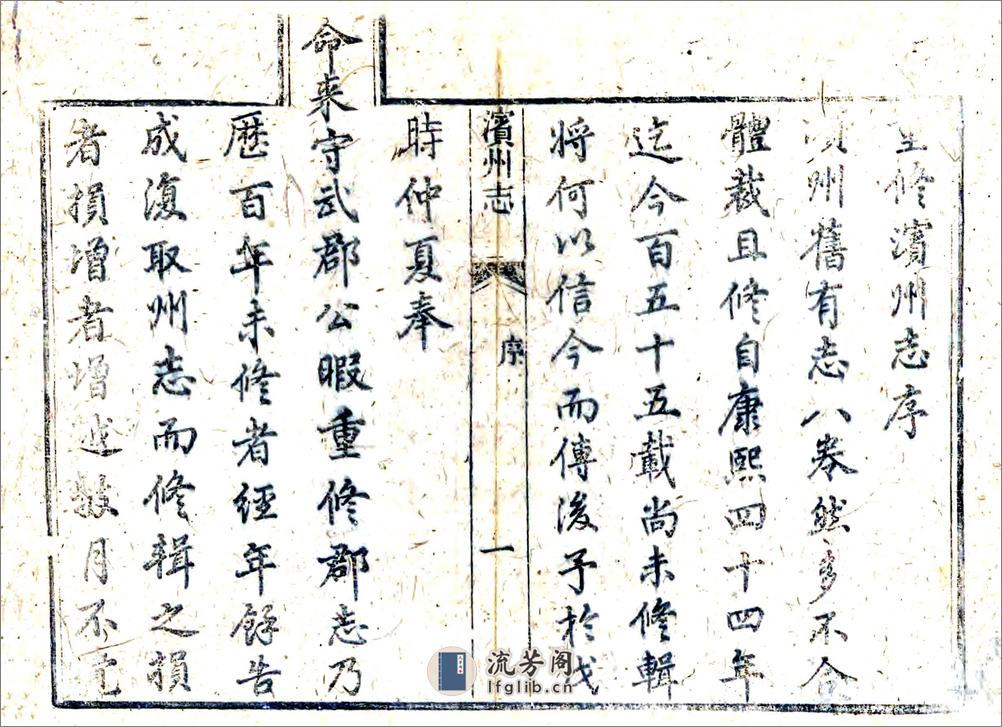 重修濱州志序
濱州舊有志八卷然多不合
體裁且修自康熙四十四年
迄今百五十五載尚未修輯
將何以信今而傳後予於
濱州志 序 一
時仲夏奉
命来守武郡公暇重修郡志乃
歷百年未修者經年餘告
成復取州志而修輯之損
者損增者增數月不
流芳阁
lfglib.cn